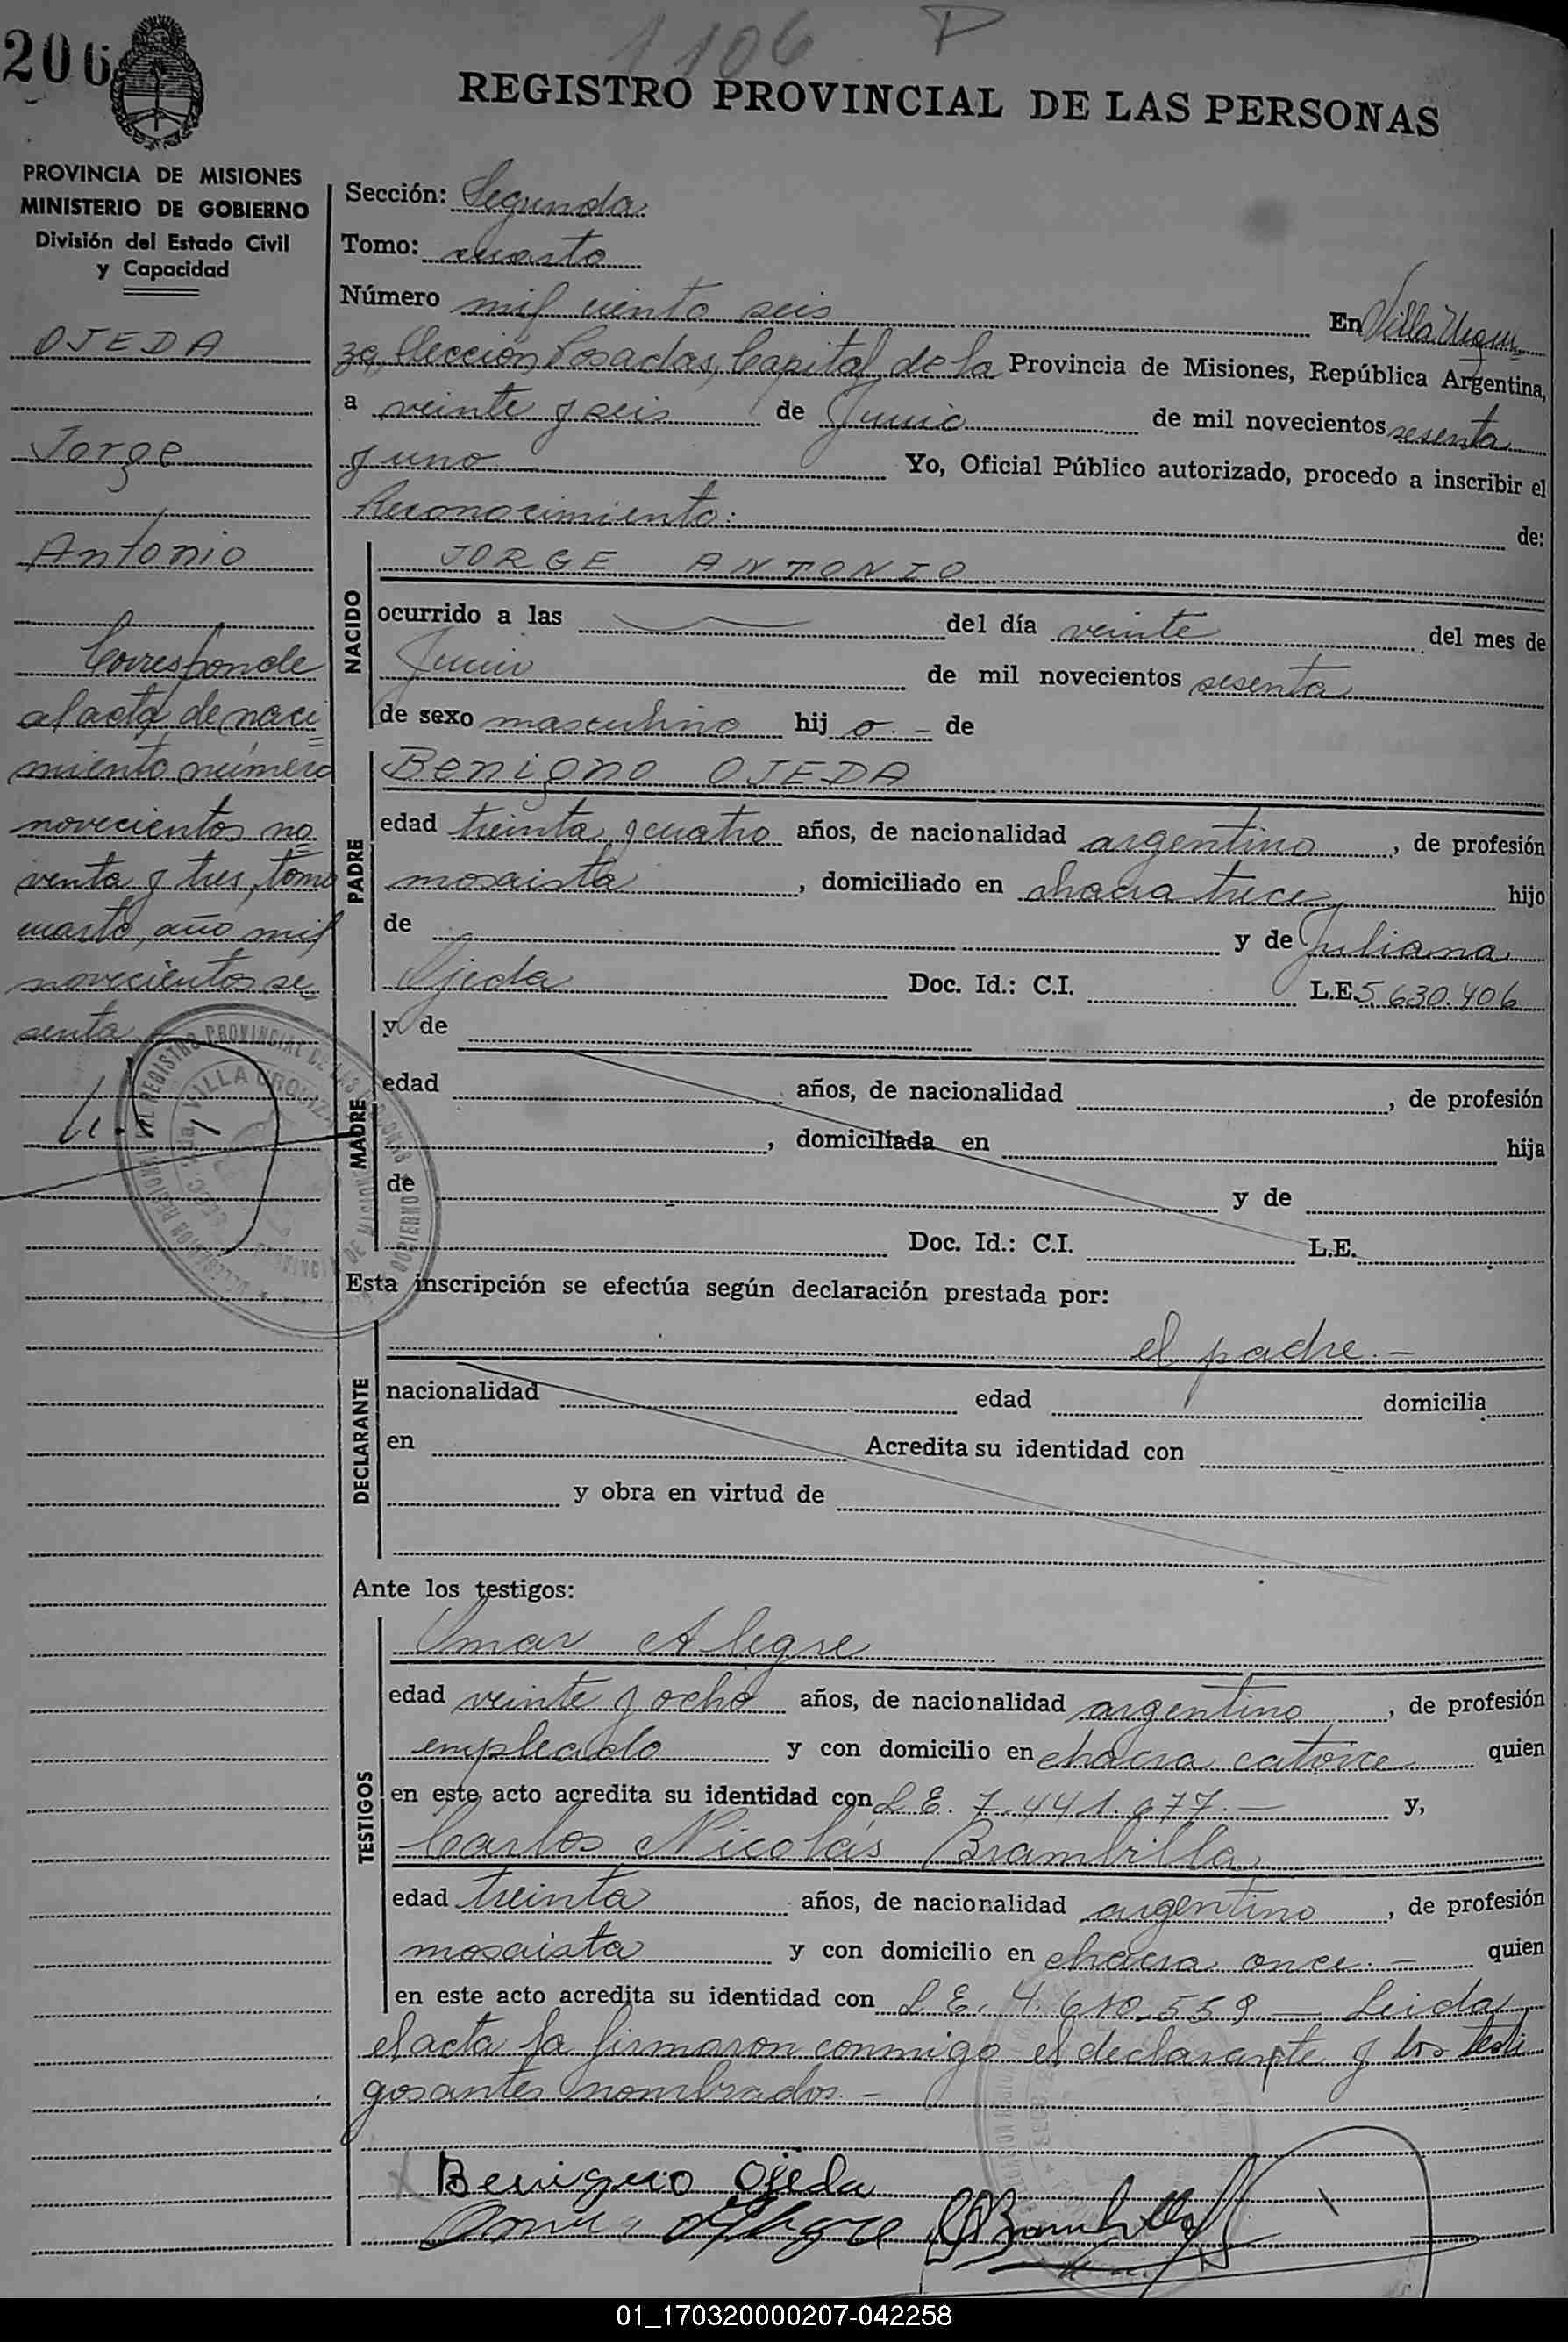 206
1106 P
REGISTRO PROVINCIAL DE LAS PERSONAS
PROVINCIA DE MISIONES
MINISTERIO DE GOBIERNO
División del Estado Civil
y Capacidad
OJEDA
Jorge
Antonio
Corresponde
al acta de naci
miento número
novecientos no
venta y tres, tomo
cuarto, año mil
novecientos se
senta
Sección: Segunda
Tomo: cuarto
Número mil ciento seis En Villa Urqui
za, Sección Posadas, Capital de la Provincia de Misiones, República Argentina,
a veinte y seis de Junio de mil novecientos sesenta
y uno Yo, Oficial Público autorizado, procedo a inscribir el
Reconocimiento: de:
NACIDO
JORGE ANTONIO
ocurrido a las del día veinte del mes de
Junio de mil novecientos sesenta
de sexo masculino hij o.- de
PADRE
Benigno OJEDA
edad treinta y cuatro años, de nacionalidad argentino, de profesión
mosaista, domiciliado en chacra trece hijo
de y de Juliana
Ojeda Doc. Id.: C.I. L.E. 5.630.406
MADRE
y de
edad años, de nacionalidad , de profesión
, domiciliada en hija
de y de
Doc. Id.: C.I. L.E.
Esta inscripción se efectúa según declaración prestada por:
DECLARANTE
el padre.-
nacionalidad edad domicilia
en Acredita su identidad con
y obra en virtud de
Ante los testigos:
TESTIGOS
Omar Alegre
edad veinte y ocho años, de nacionalidad argentino, de profesión
empleado y con domicilio en chacra catorce quien
en este acto acredita su identidad con L.E. 7.441.677.- y,
Carlos Nicolás Brambilla
edad treinta años, de nacionalidad argentino, de profesión
mosaista y con domicilio en chacra once.- quien
en este acto acredita su identidad con L.E. 4.610.559 - Leida
el acta la firmaron conmigo el declarante y los testi
gos antes nombrados.-
Benigno Ojeda
01_170320000207-042258